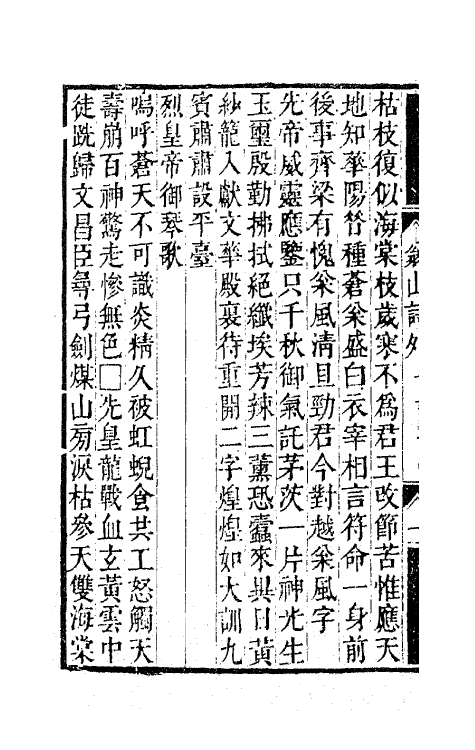 翁山詩外
枯枝復似海棠枝歲寒不為君王改節苦惟應天
地知華陽舊種蒼翁盛白衣宰相言符命一身前
後事齊梁有愧翁風清且勁君今對越翁風字
先帝威靈應鑒只千秋御氣託茅茨一片神光生
玉璽殷勤拂拭絕纖埃芳辣三薰恐蠹來異日黃
紗籠入獻文華殿裏待重開二字煌煌如大訓九
賓肅肅設平臺
烈皇帝御琴歌
嗚呼蒼天不可識炎精久被虹蜺食共工怒觸天
壽崩百神驚走慘無色□先皇龍戰血玄黃雲中
徒跣歸文昌臣尋弓劍煤山旁淚枯參天雙海棠